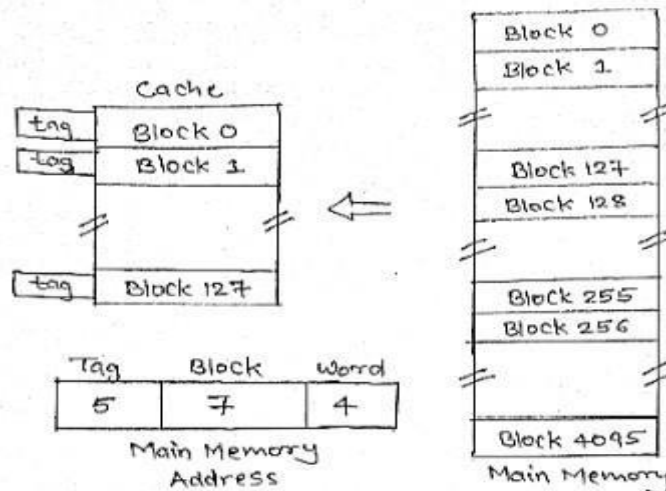 Cache
tag
Block 0
tag
Block 1
tag
Block 127
Tag Block Word
5 7 4
Main Memory
Address
Block 0
Block 1
Block 127
Block 128
Block 255
Block 256
Block 4095
Main Memory